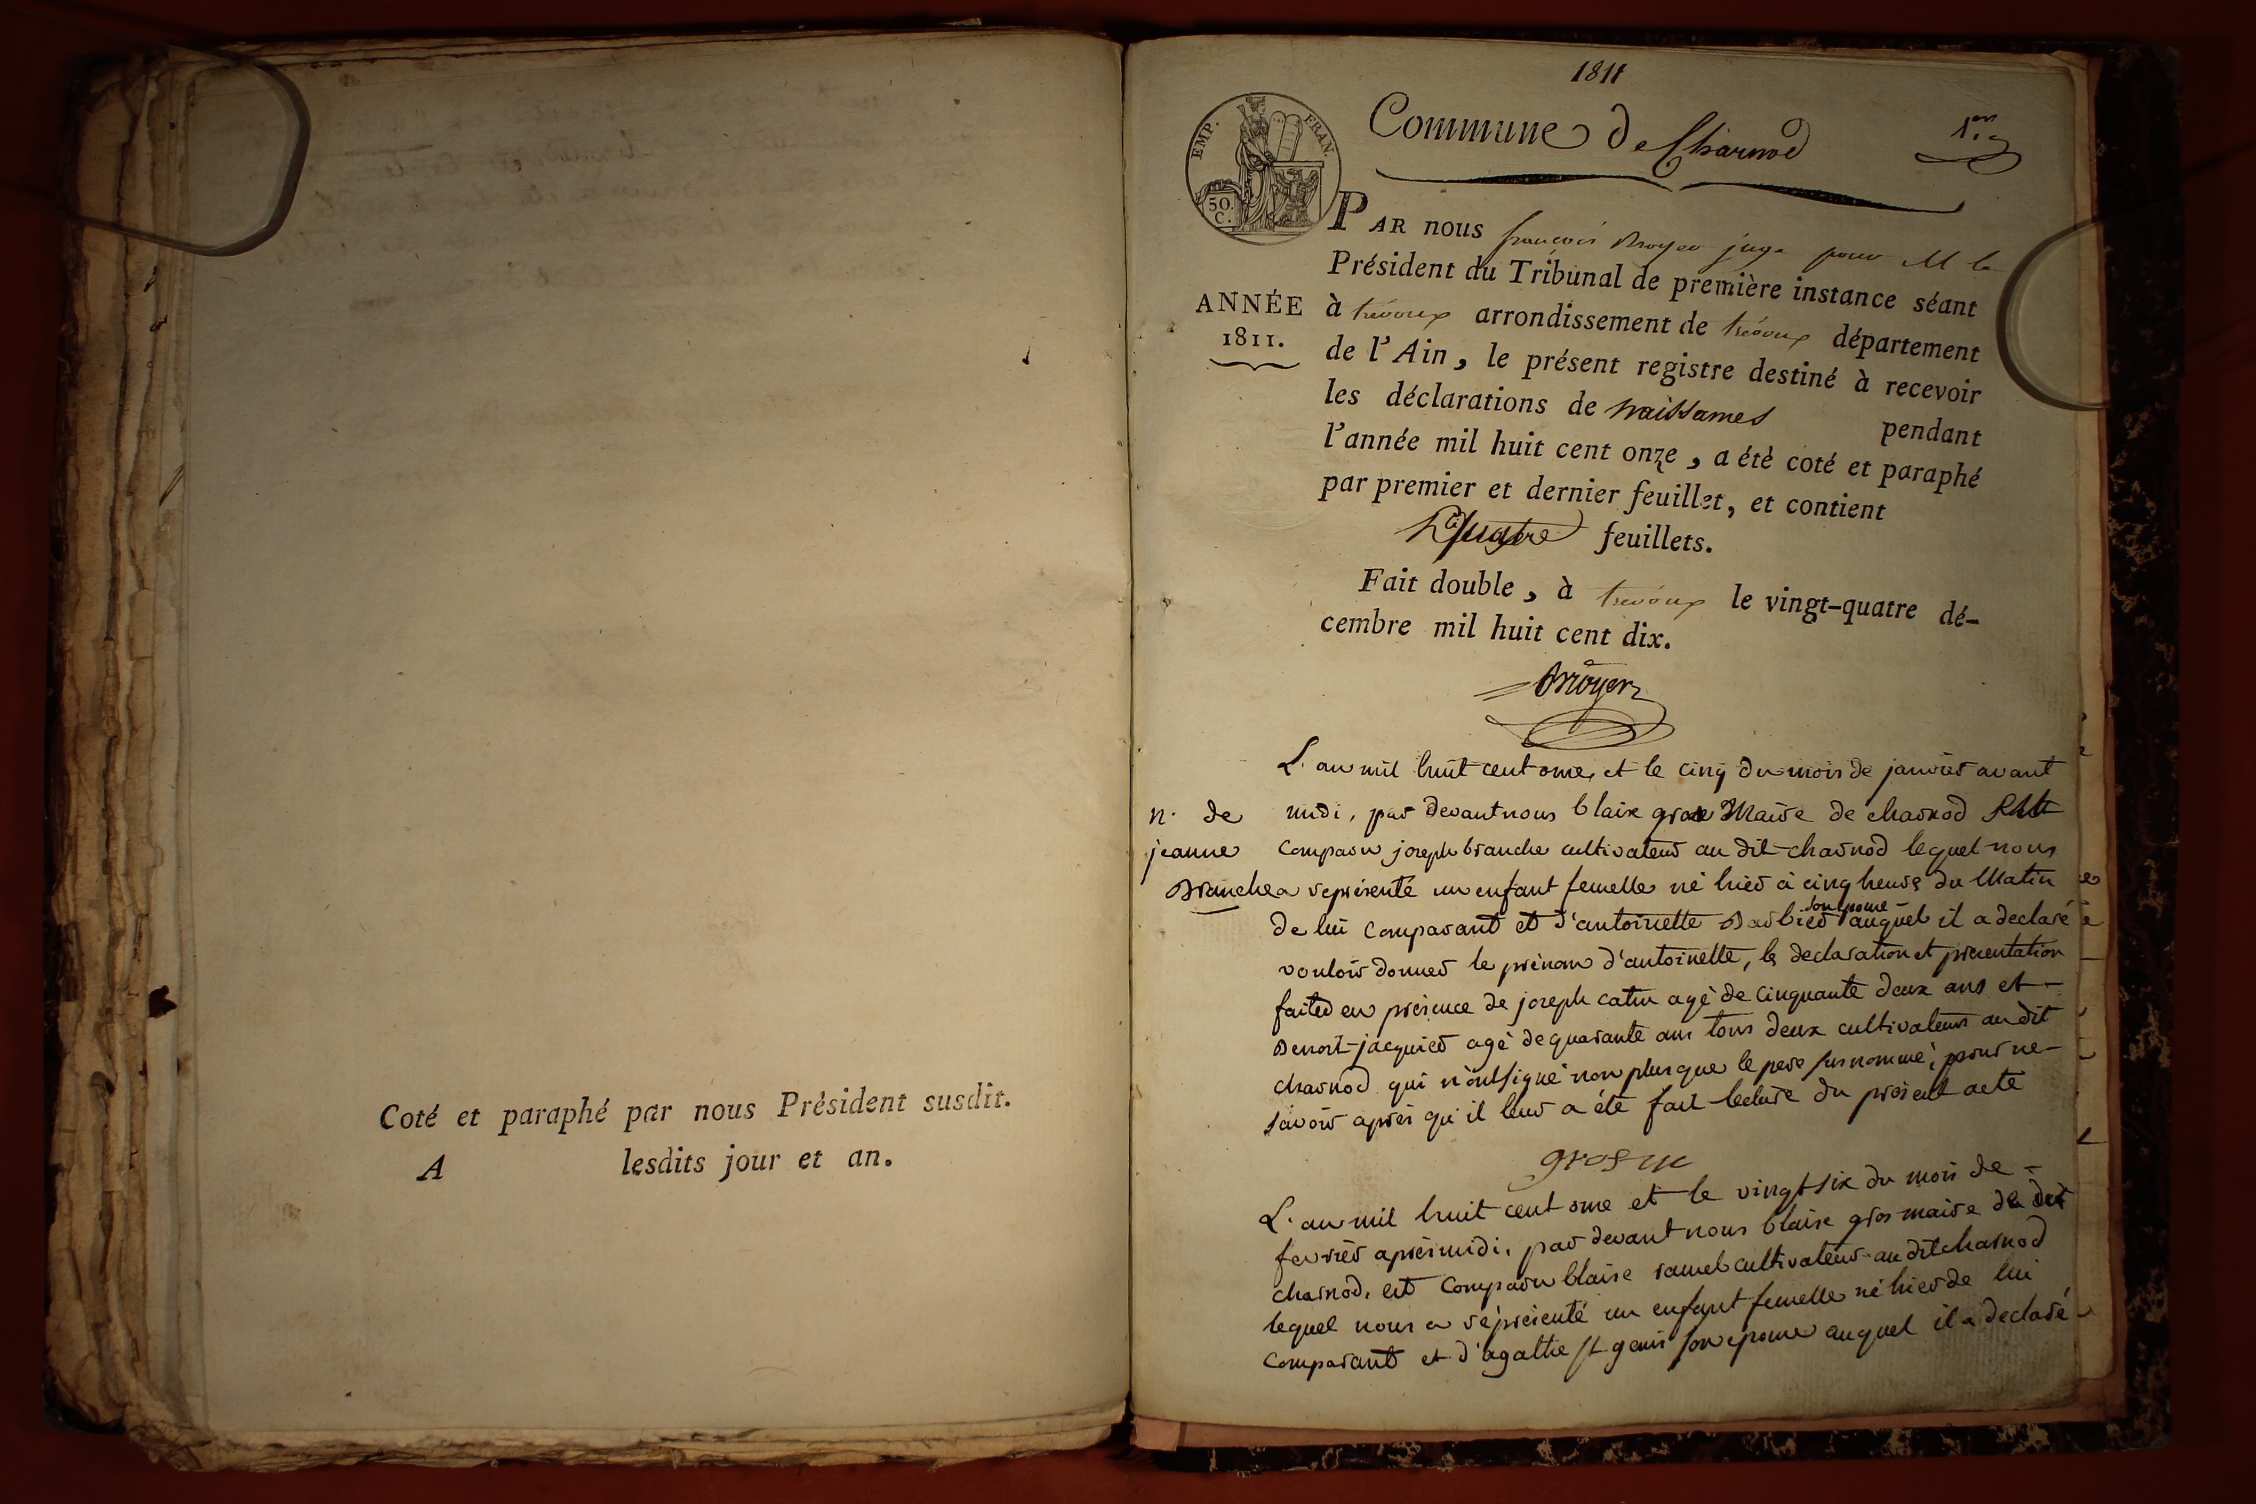 Coté et paraphé par nous Président susdit.
A lesdits jour et an.
1811
EMP. FRAN.
50.
C.
Commune de Charnod
1.er
PAR nous françois Broyer juge pour M le
Président du Tribunal de première instance séant
ANNÉE
1811.
à trévoux arrondissement de trévoux département
de l'Ain, le présent registre destiné à recevoir
les déclarations de naissances pendant
l'année mil huit cent onze, a été coté et paraphé
par premier et dernier feuillet, et contient
quatre feuillets.
Fait double, à trévoux le vingt-quatre dé-
cembre mil huit cent dix.
Broyer
L'an mil huit cent onze, et le cinq du mois de janvier avant
n. de
jeanne
Branche
midi, par devant nous blaise gros Maire de charnod Est
comparu joseph branche cultivateur au dit charnod lequel nous
a représenté un enfant femelle né hier à cinq heures du Matin
de lui comparant et d'antoinette Barbier son epouse auquel il a declaré
vouloir donner le prénom d'antoinette, les declaration et presentation
faites en présence de joseph catin agé de cinquante deux ans et
Benoit jacquier agé de quarante ans tous deux cultivateurs au dit
charnod qui n'ont signé non plus que le pere susnommé, pour ne
savoir après qu'il leur a été fait lecture du présent acte
gros m
L'an mil huit cent onze et le vingt six du mois de
fevrier après midi, par devant nous blaise gros maire de dit
charnod, est comparu blaise ramel cultivateur au dit charnod
lequel nous a réprésenté un enfant femelle né hier de lui
comparant et d'agathe st genis son epouse auquel il a declaré